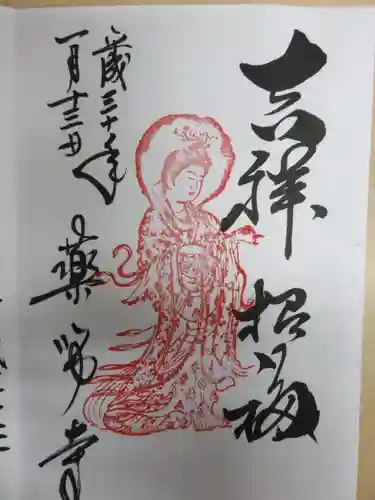 吉祥招福
平成三十年
一月十三日
薬師寺